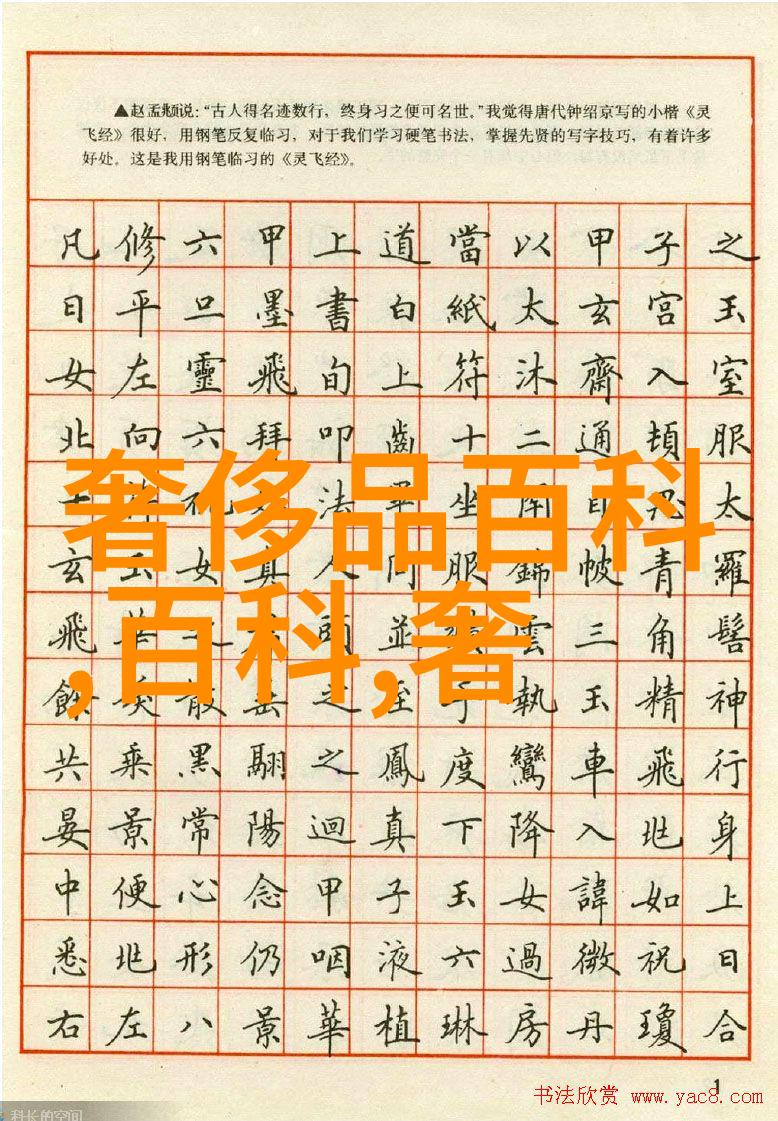 ▲赵孟頫说：“古人得名迹数行，终身习之便可名世。”我觉得唐代钟绍京写的小楷《灵
飞经》很好，用钢笔反复临习，对于我们学习硬笔书法，掌握先贤的写字技巧，有着许多
好处。这是我用钢笔临习的《灵飞经》。
凡修六甲上道當以甲子之
日平旦墨書白紙太玄宮玉
女左靈飛旬上符沐齋入室
北向六拜叩齒十二通頓服
法坐目太
玄玉女真人同服錦帔青羅
飛華之頭並雲三角髻
餘散之至手執玉精神
共乘黑翮之鳳度鸞車飛行
晏景常陽迴真下降入兆身
中便心念甲子玉女諱如上
悉兆形仍咽液六過微祝曰
右左八景華植琳房丹瓊合
奢侈品百科
,百科,奢
1
书法欣赏 www.yac8.com
科长的空间